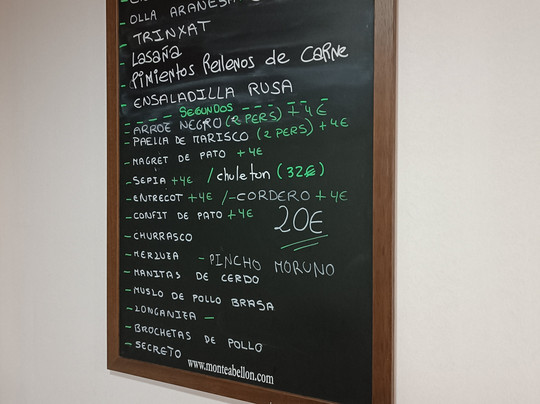 - OLLA ARANESA
- TRINXAT
- Lasaña
- Pimientos Rellenos de Carne
- ENSALADILLA RUSA
- - - - SEGUNDOS - - - - -
- ARROZ NEGRO (2 PERS) + 4€
- PAELLA DE MARISCO (2 PERS) + 4€
- MAGRET DE PATO + 4€
- SEPIA + 4€ / chuleton (32€)
- ENTRECOT + 4€ / - CORDERO + 4€
- CONFIT DE PATO + 4€
20€
- CHURRASCO
- MERLUZA - PINCHO MORUNO
- MANITAS DE CERDO
- MUSLO DE POLLO BRASA
- LONGANIZA -
- BROCHETAS DE POLLO
- SECRETO
www.monteabellon.com